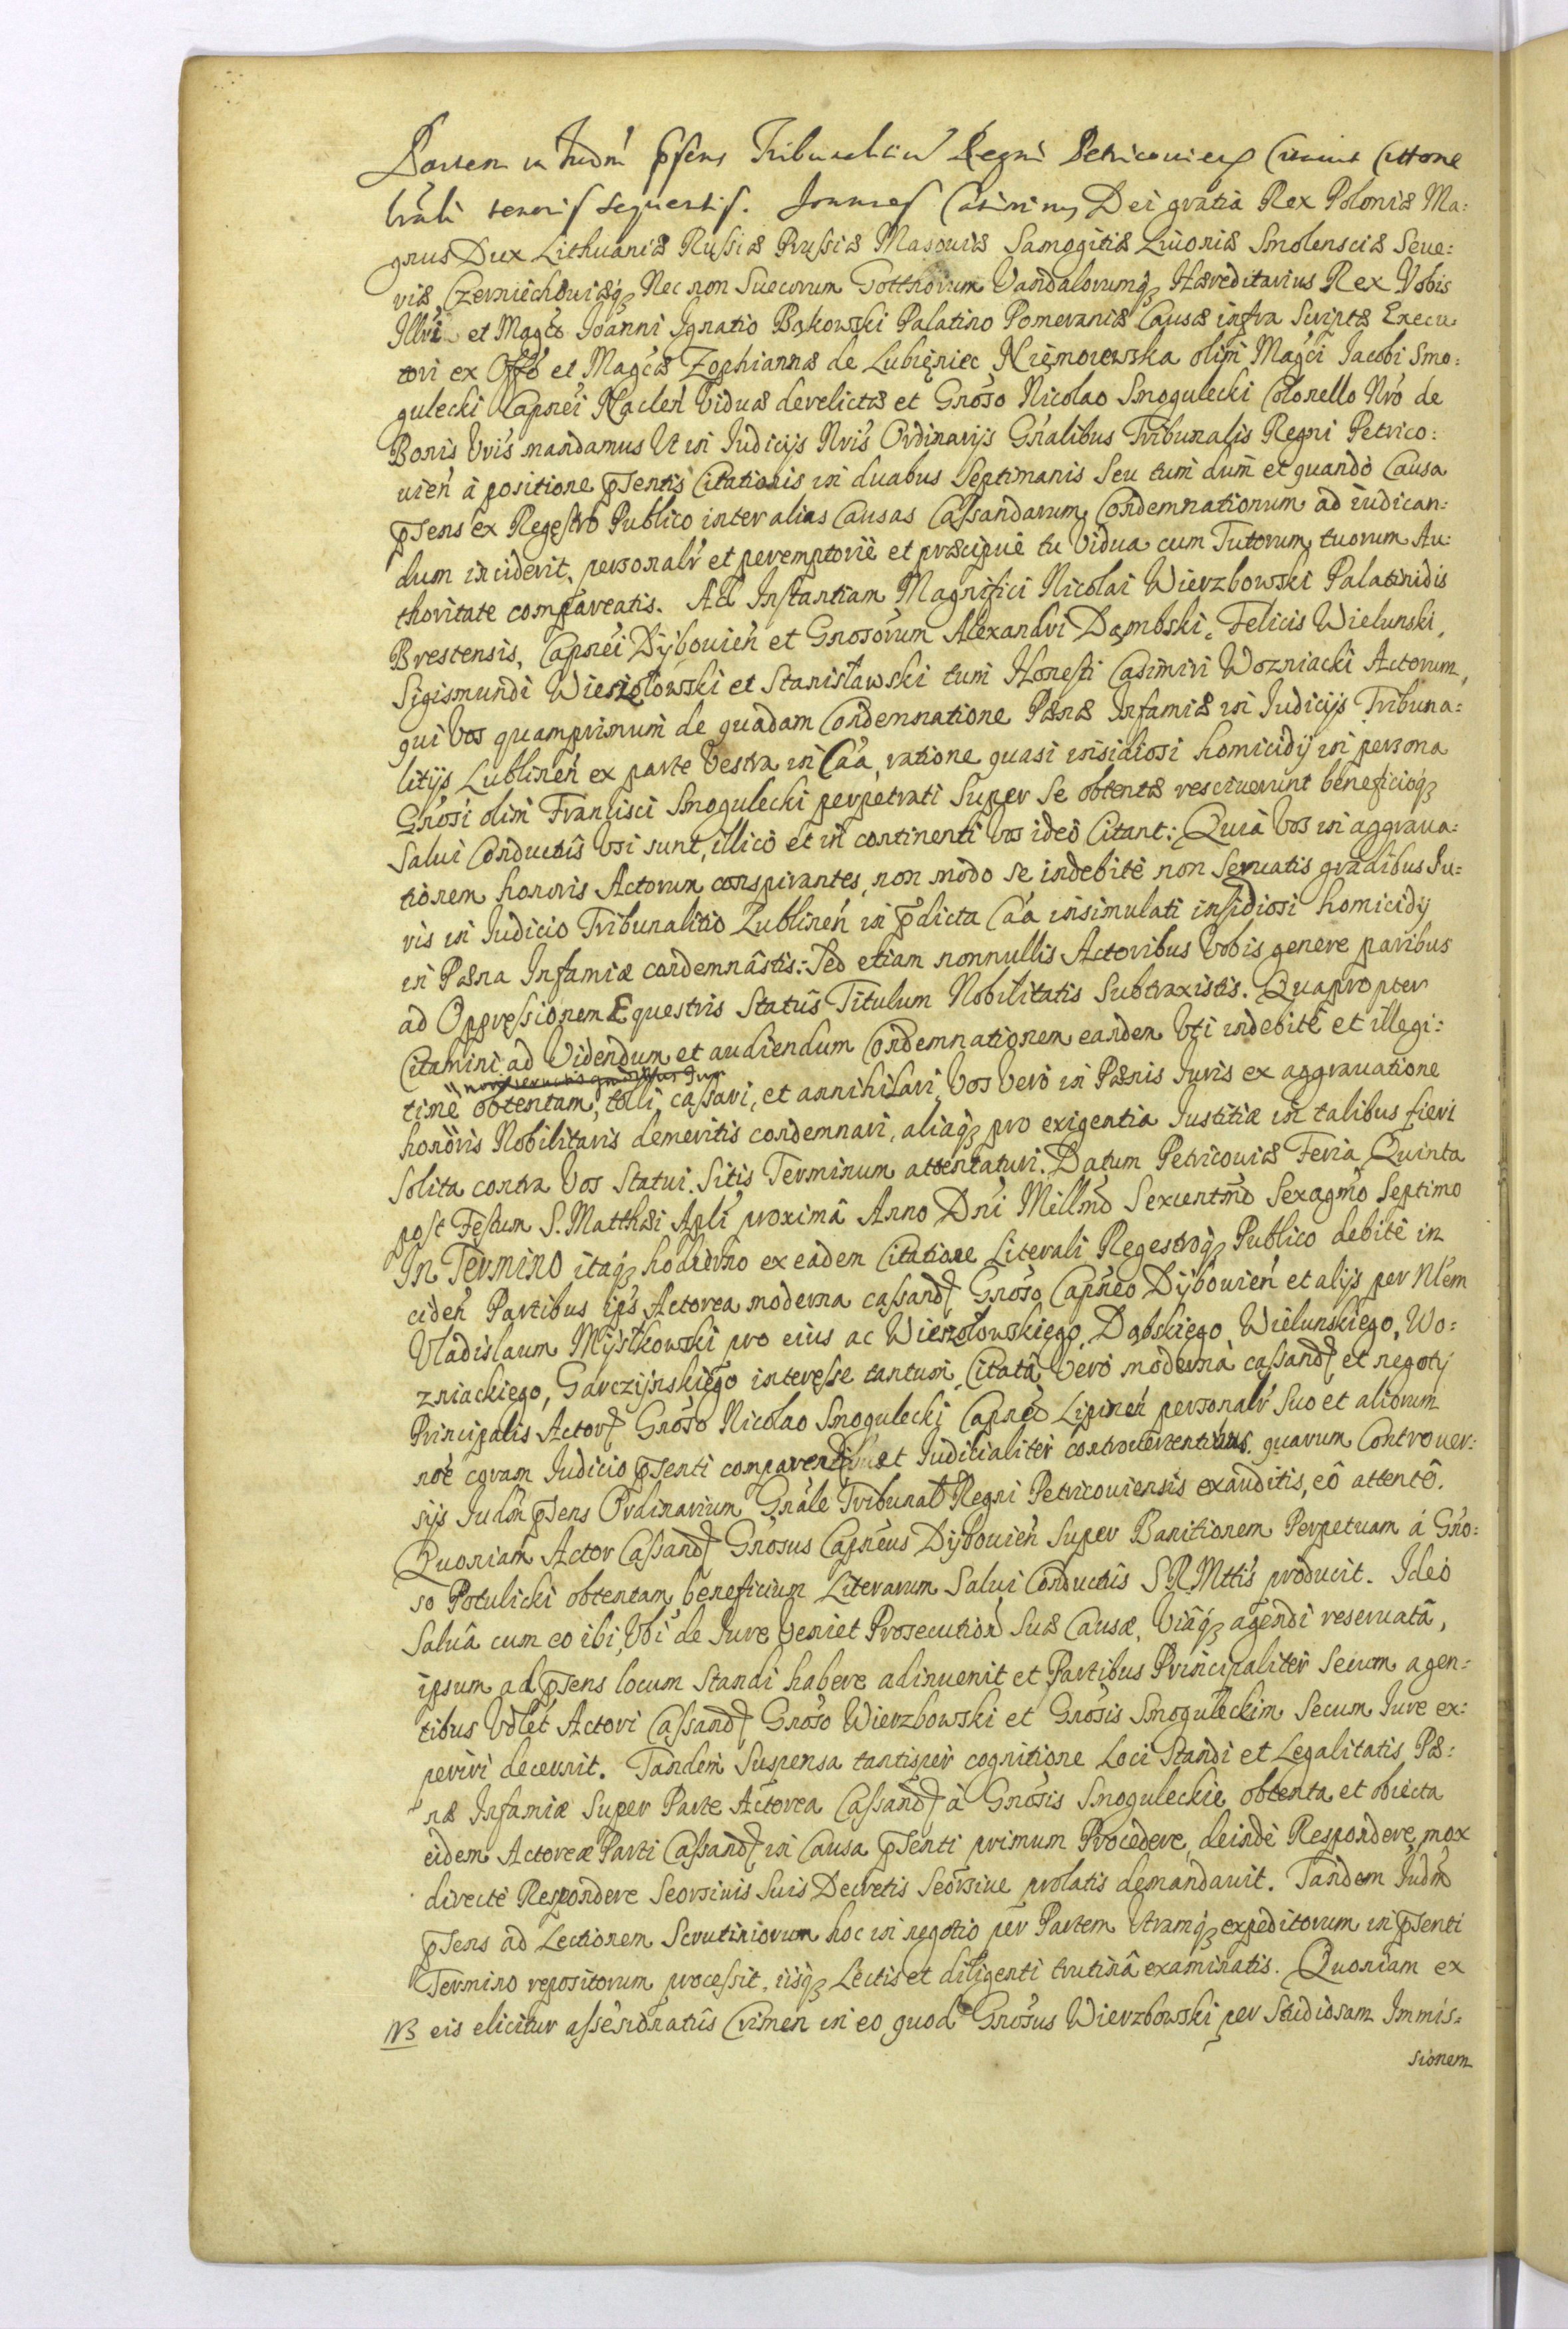 Partem in Judm psens Tribunalium Regni Petricouien Citauit Cittone
lirali tenoris sequentis. Joannes Casimirus Dei gratia Rex Poloniæ Ma:
gnus Dux Lithuaniæ Russiæ Prussiæ Masouiæ Samogitiæ Liuoniæ Smolensciæ Seue:
riæ Czerniechouiæq; Nec non Suecorum Gotthorum Vandalorumq; Hæreditarius Rex Vobis
Illri et Magco Joanni Ignatio Bąkowski Palatino Pomeraniæ Causæ infra Scriptæ Execu
tori ex Offo et Magcæ Zophiannæ de Lubieniec Niemoiewska olim Magci Jacobi Smo:
gulecki Capnei Naclen Viduæ derelictæ et Gnoso Nicolao Smogulecki Colonello Nro de
Bonis Vris mandamus Ut in Judicijs Nris Ordinarijs Gnalibus Tribunalis Regni Petrico:
uien à positione psentis Citationis in duabus Septimanis Seu tum dum et quando Causa
psens ex Regestro Publico inter alias Causas Cassandarum Condemnationum ad iudican:
dum inciderit, personalr et peremptorie et præcipue tu Vidua cum Tutorum tuorum Au:
thoritate compareatis. Ad Instantiam Magnifici Nicolai Wierzbowski Palatinidis
Brestensis, Capnei Dÿbouien et Gnosorum Alexandri Dąmbski, Felicis Wielunski,
Sigismundi Wiesiołowski et Stanisławski tum Honesti Casimiri Wozniacki Actorum,
qui Vos quamprimum de quadam Condemnatione Pænæ Infamiæ in Judicijs Tribuna:
litijs Lublinen ex parte Vestra in Caa, ratione quasi insidiosi homicidij in persona
Gnosi olim Francisci Smogulecki perpetrati Super Se obtentæ resciuerunt beneficioq;
Salui Conductûs Vsi sunt, illicò et in continenti Vos ideò Citant: Quià Vos in aggraua:
tionem honoris Actorum conspirantes, non modo se indebitè non Seruatis gradibus Ju:
ris in Judicio Tribunalitio Lublinen in pdicta Caa insimulati insidiosi homicidij
in Pæna Infamiæ condemnâstis: Sed etiam nonnullis Actoribus Vobis genere paribus
ad Oppressionem Equestris Statûs Titulum Nobilitatis Subtraxistis. Quapropter
Citamini ad Videndum et audiendum Condemnationem eandem Vti indebitè et illegi:
non seruatis gradibus Jur
timè obtentam, tolli, cassari, et annihilari, Vos Verò in Pænis Juris ex aggrauatione
honoris Nobilitaris demeritis condemnari, aliaq; pro exigentia Justitiæ in talibus fieri
Solita contra Vos Statui. Sitis Terminum attentaturi. Datum Petricouiæ Feria Quinta
post Festum S. Matthæi Apli proximâ Anno Dni Millmo Sexcentmo Sexagmo Septimo
In Termino itaq; hodierno ex eadem Citatione Literali Regestroq; Publico debitè in
ciden Partibus ips Actorea moderna cassand Gnoso Capneo Dÿbouien et alijs per Nlem
Vladislaum Mÿstkowski pro eius ac Wiesiołowskiego, Dąbskiego, Wielunskiego, Wo:
zniackiego, Garczÿnskiego interesse tantum, Citatâ Verò modernà cassand et negotij
Principalis Actor Gnoso Nicolao Smogulecki Capneo Lipinen personalr Suo et aliorum
noe coram Judicio psenti comparentibus et Judicialiter controuertentibus quarum Controuer:
sijs Judm psens Ordinarium Gnale Tribunal Regni Petricouiensis exauditis, eô attentô.
Quoniam Actor Cassand Gnosus Capneus Dÿbouien Super Banitionem Perpetuam à Gno:
so Potulicki obtentam beneficium Literarum Salui Conductûs S R Mttis producit. Ideò
Saluâ cum eo ibi, Vbi de Jure Veniet Prosecution Suæ Causæ, Viâq; agendi reseruatâ,
ipsum ad psens locum Standi habere adinuenit et Partibus Principaliter Secum agen:
tibus Vdlet Actori Cassand Gnoso Wierzbowski et Gnosis Smoguleckim Secum Jure ex:
periri decernit. Tandem Suspensa tantisper cognitione Loci Standi et Legalitatis Pæ:
næ Infamiæ Super Parte Actorea Cassand à Gnosis Smoguleckie obtenta et obiecta
eidem Actoreæ Parti Cassand in Causa psenti primum Procedere, deindè Respondere, mox
directè Respondere Seorsiuis Suis Decretis Seorsiue prolatis demandauit. Tandem Judm
psens ad Lectionem Scrutiniorum hoc in negotio per Partem Utramq; expeditorum in psenti
Termino repositorum processit, iisq; Lectis et diligenti trutinâ examinatis. Quoniam ex
NB eis elicitur assesionatûs Crimen in eo quod Gnosus Wierzbowski per Studiosam Immis:
sionem